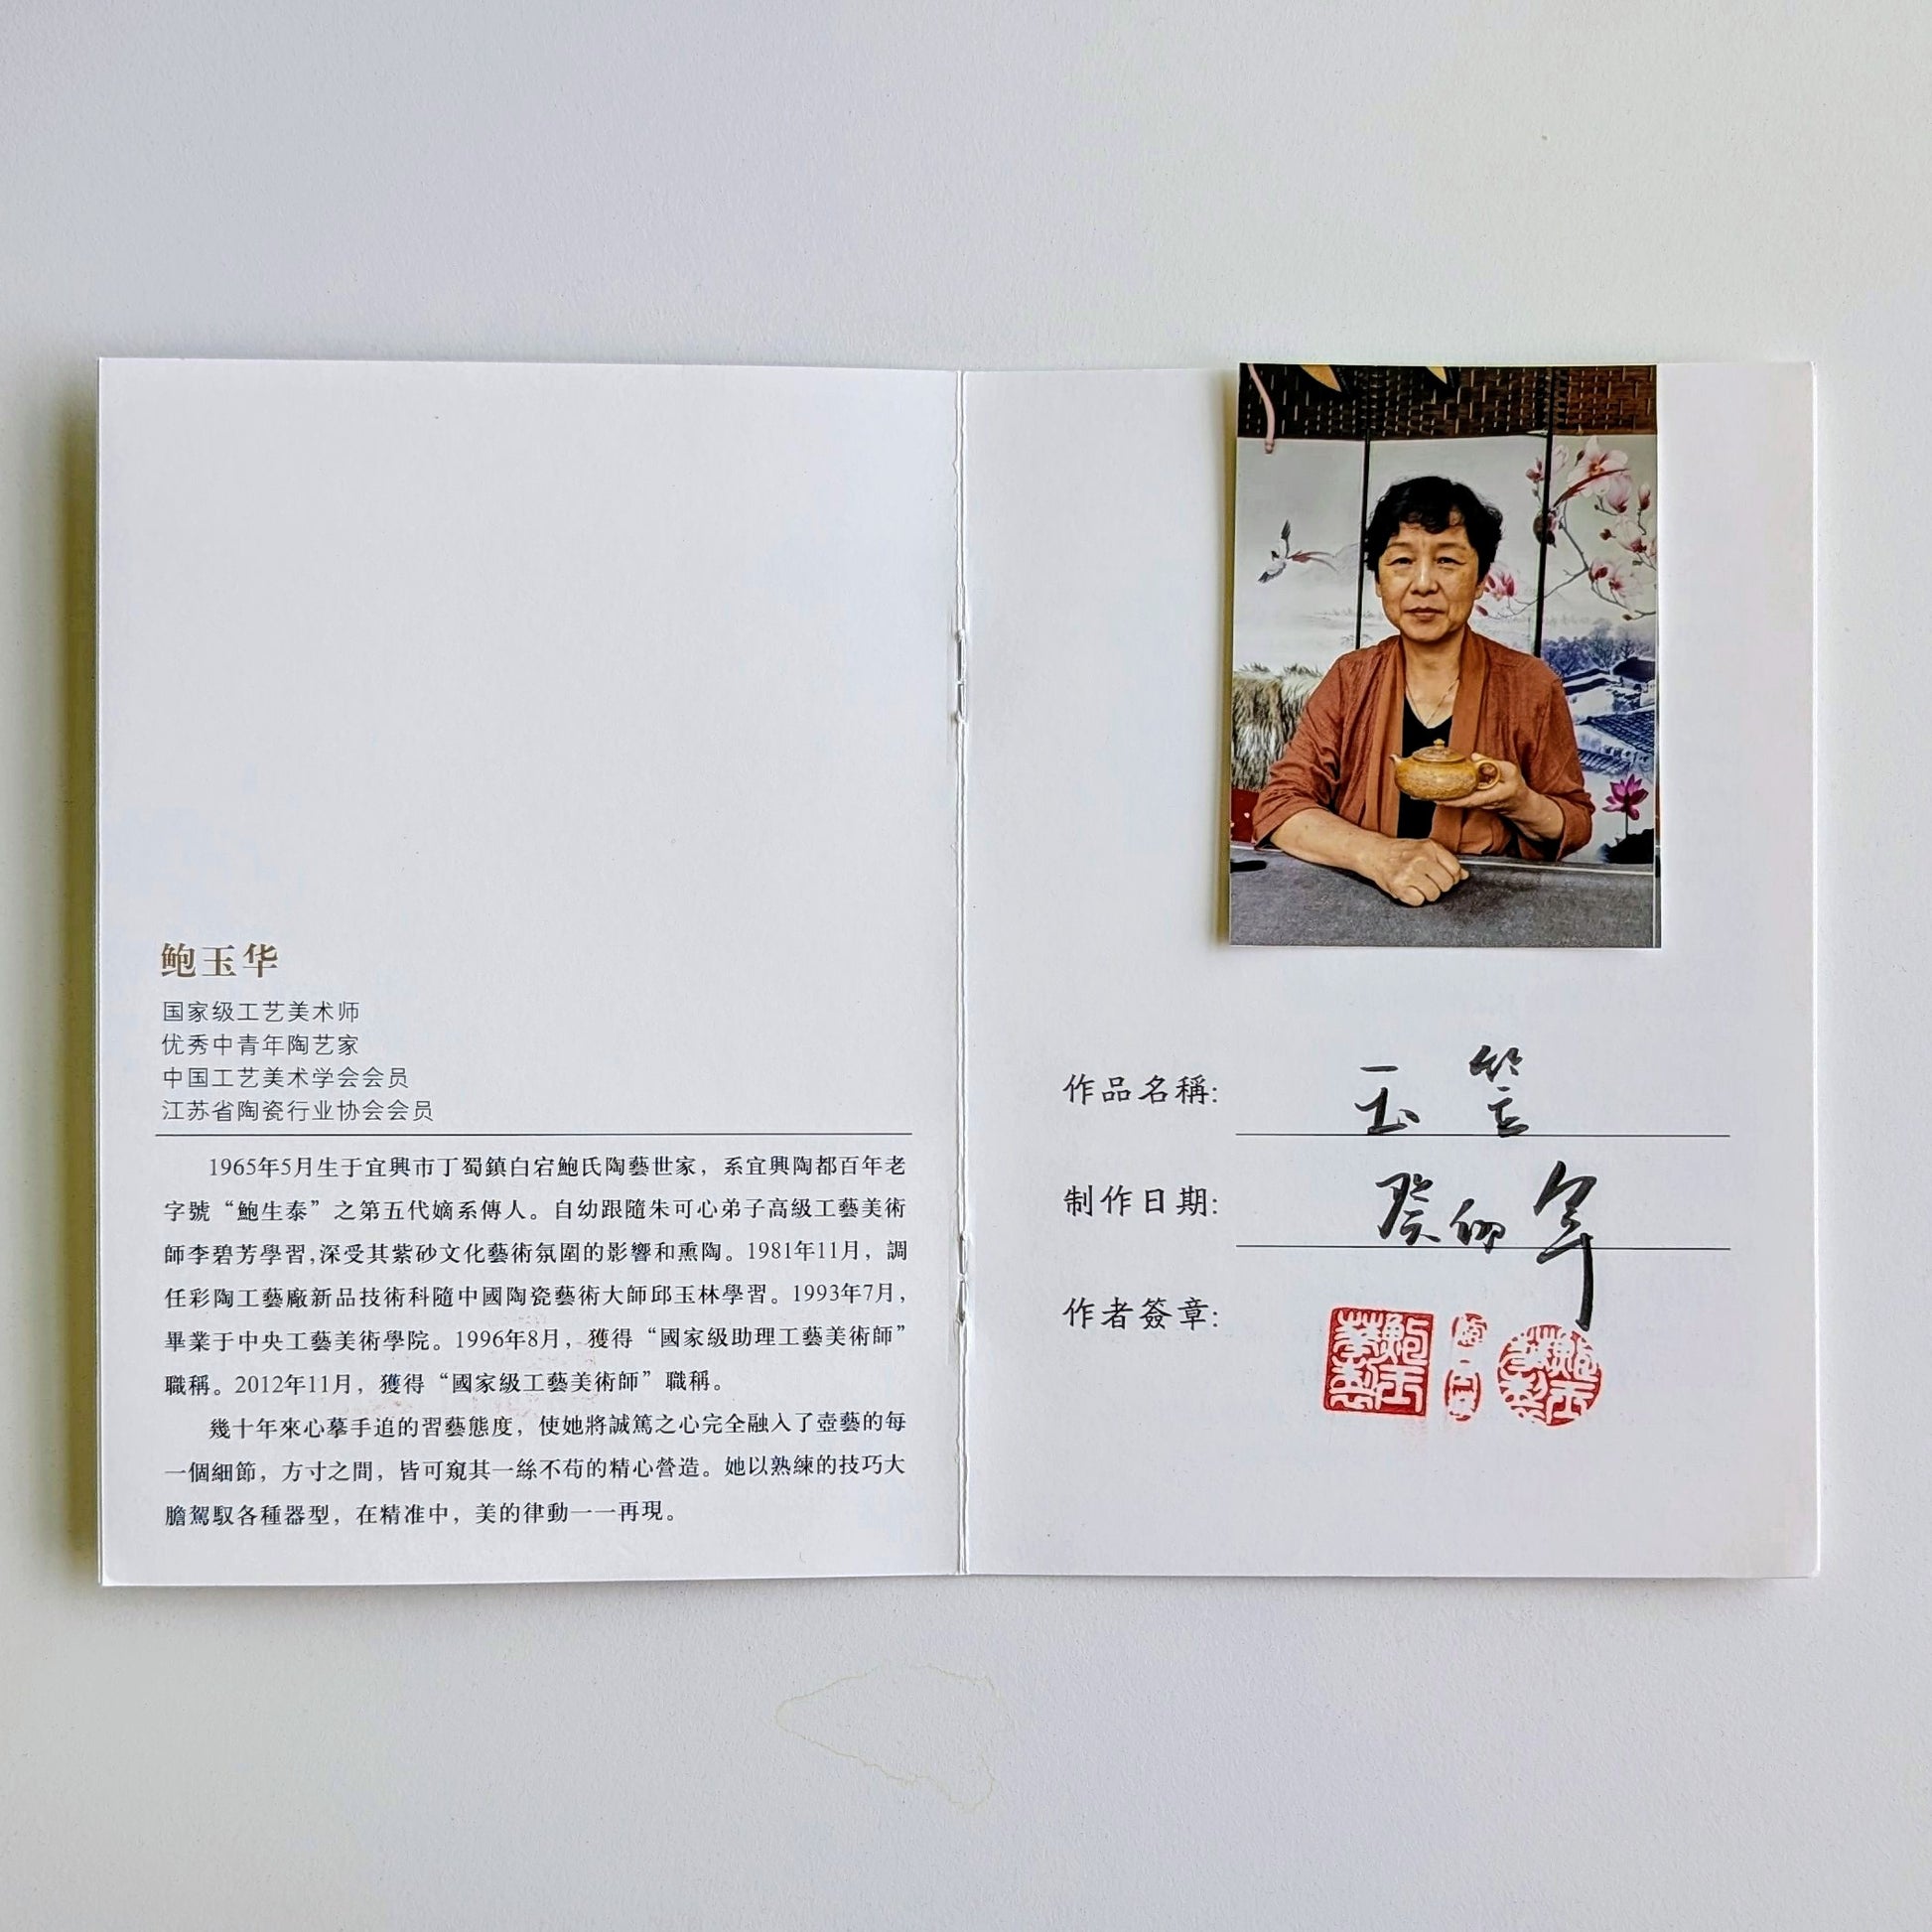 鲍玉华
国家级工艺美术师
优秀中青年陶艺家
中国工艺美术学会会员
江苏省陶瓷行业协会会员
1965年5月生于宜興市丁蜀鎮白宕鮑氏陶藝世家，系宜興陶都百年老
字號“鮑生泰”之第五代嫡系傳人。自幼跟隨朱可心弟子高級工藝美術
師李碧芳學習,深受其紫砂文化藝術氛圍的影響和熏陶。1981年11月，調
任彩陶工藝廠新品技術科隨中國陶瓷藝術大師邱玉林學習。1993年7月，
畢業于中央工藝美術學院。1996年8月，獲得“國家級助理工藝美術師”
職稱。2012年11月，獲得“國家級工藝美術師”職稱。
幾十年來心摹手追的習藝態度，使她將誠篤之心完全融入了壺藝的每
一個細節，方寸之間，皆可窺其一絲不苟的精心營造。她以熟練的技巧大
膽駕馭各種器型，在精准中，美的律動一一再現。
作品名稱: 玉笠
制作日期: 癸卯年
作者簽章:
鮑玉華製
鮑玉華製